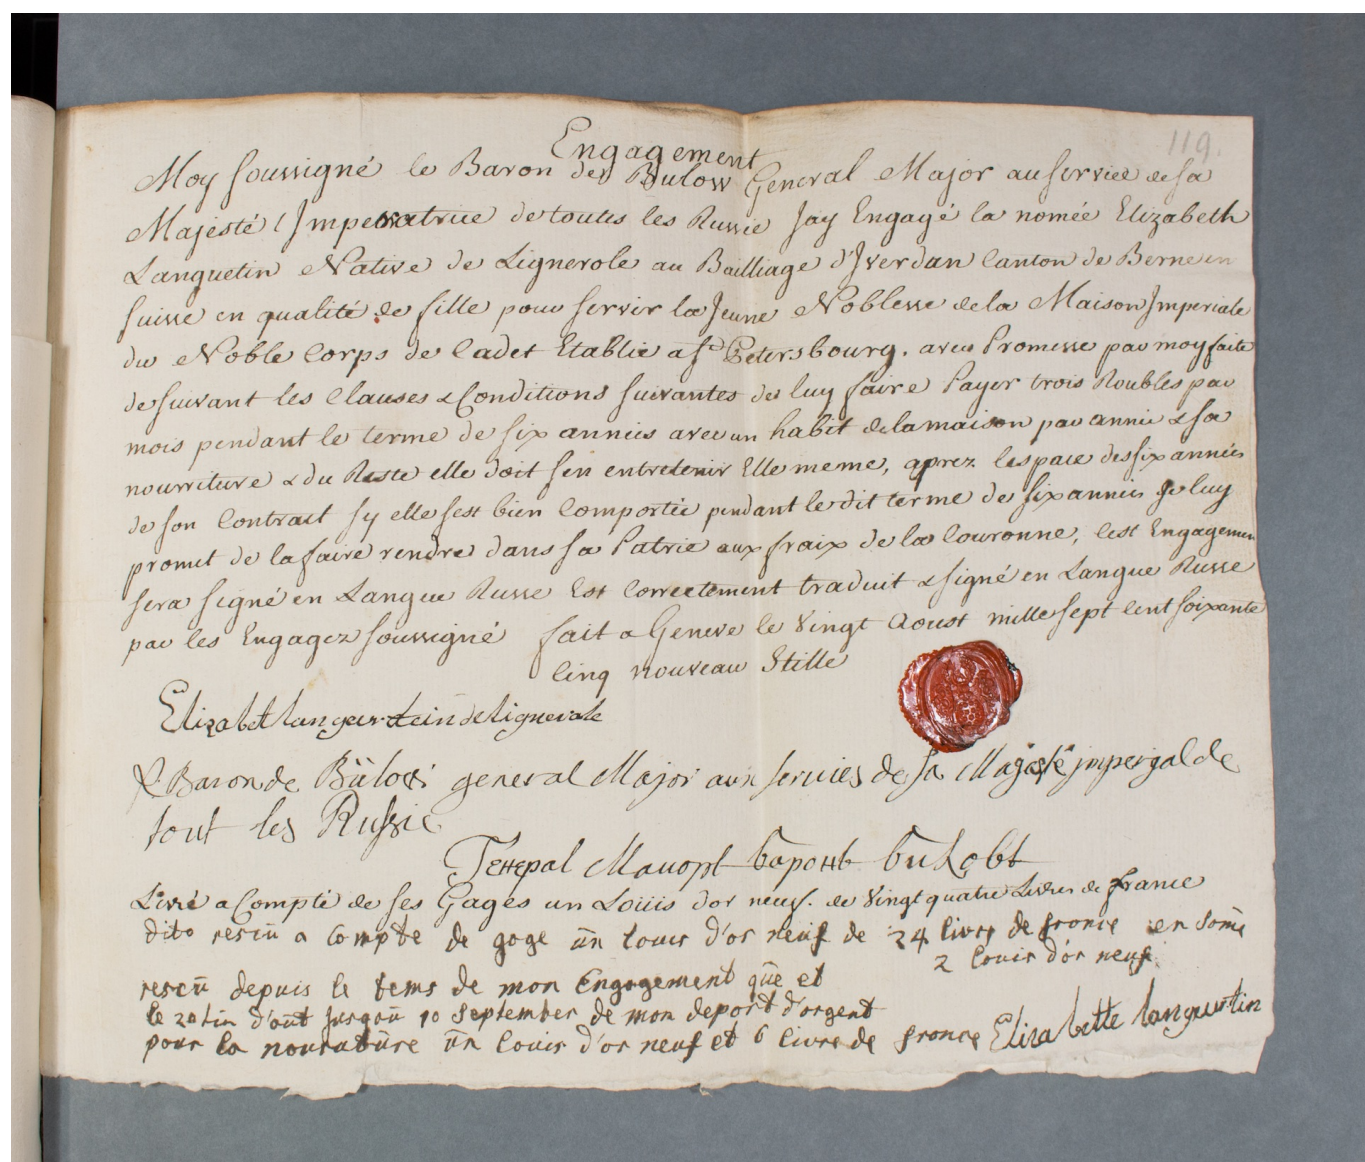 119.
Engagement
Moy soussigné le Baron de Bulow General Major au service de sa
Majesté l'Imperatrice de toutes les Russie Jay Engagé la nomée Elizabeth
Languetin Native de Lignerole au Bailliage d'Iverdun Canton de Berne en
suisse en qualité de fille pour servir la Jeune Noblesse de la Maison Imperiale
du Noble Corps de Cadet Etablie a St Petersbourg. avec Promesse par moy faite
de suivant les Clauses & Conditions suivantes de luy faire Payer trois Roubles par
mois pendant le terme de six années avec un habit de la maison par année & sa
nourriture & du Reste elle doit sen entretenir Elle meme, aprez lespace des six années
de son Contrait sy elle sest bien Comportée pendant le dit terme de six années je luy
promet de la faire rendre dans sa Patrie aux fraix de la Couronne, Cest Engagemen
sera signé en Langue Russe Est Correctement traduit & signé en Langue Russe
par les Engagez soussigné fait a Geneve le Vingt Aoust mille sept Cent soixante
Cinq nouveau Stille
Elizabet langeurtein de lignerale
Baron de Bülow general Major aux servies de sa Magesté imperyal de
tout les Russie
Генерал Маиоръ баронъ биловъ
Livré a Compte de ses Gages un Loüis dor neuf. de Vingt quatre Livres de france
dito reseü a Compte de gage ün louis d'or neuf de 24 livres de france en somē
2 louis d'or neuf.
reseü depuis le tems de mon Engagement qūe et
le 20tin d'oüt jusqaū 10 September de mon deport d'argent
pour la nouratüre ün louis d'or neuf et 6 livre de france Elizabette languertin